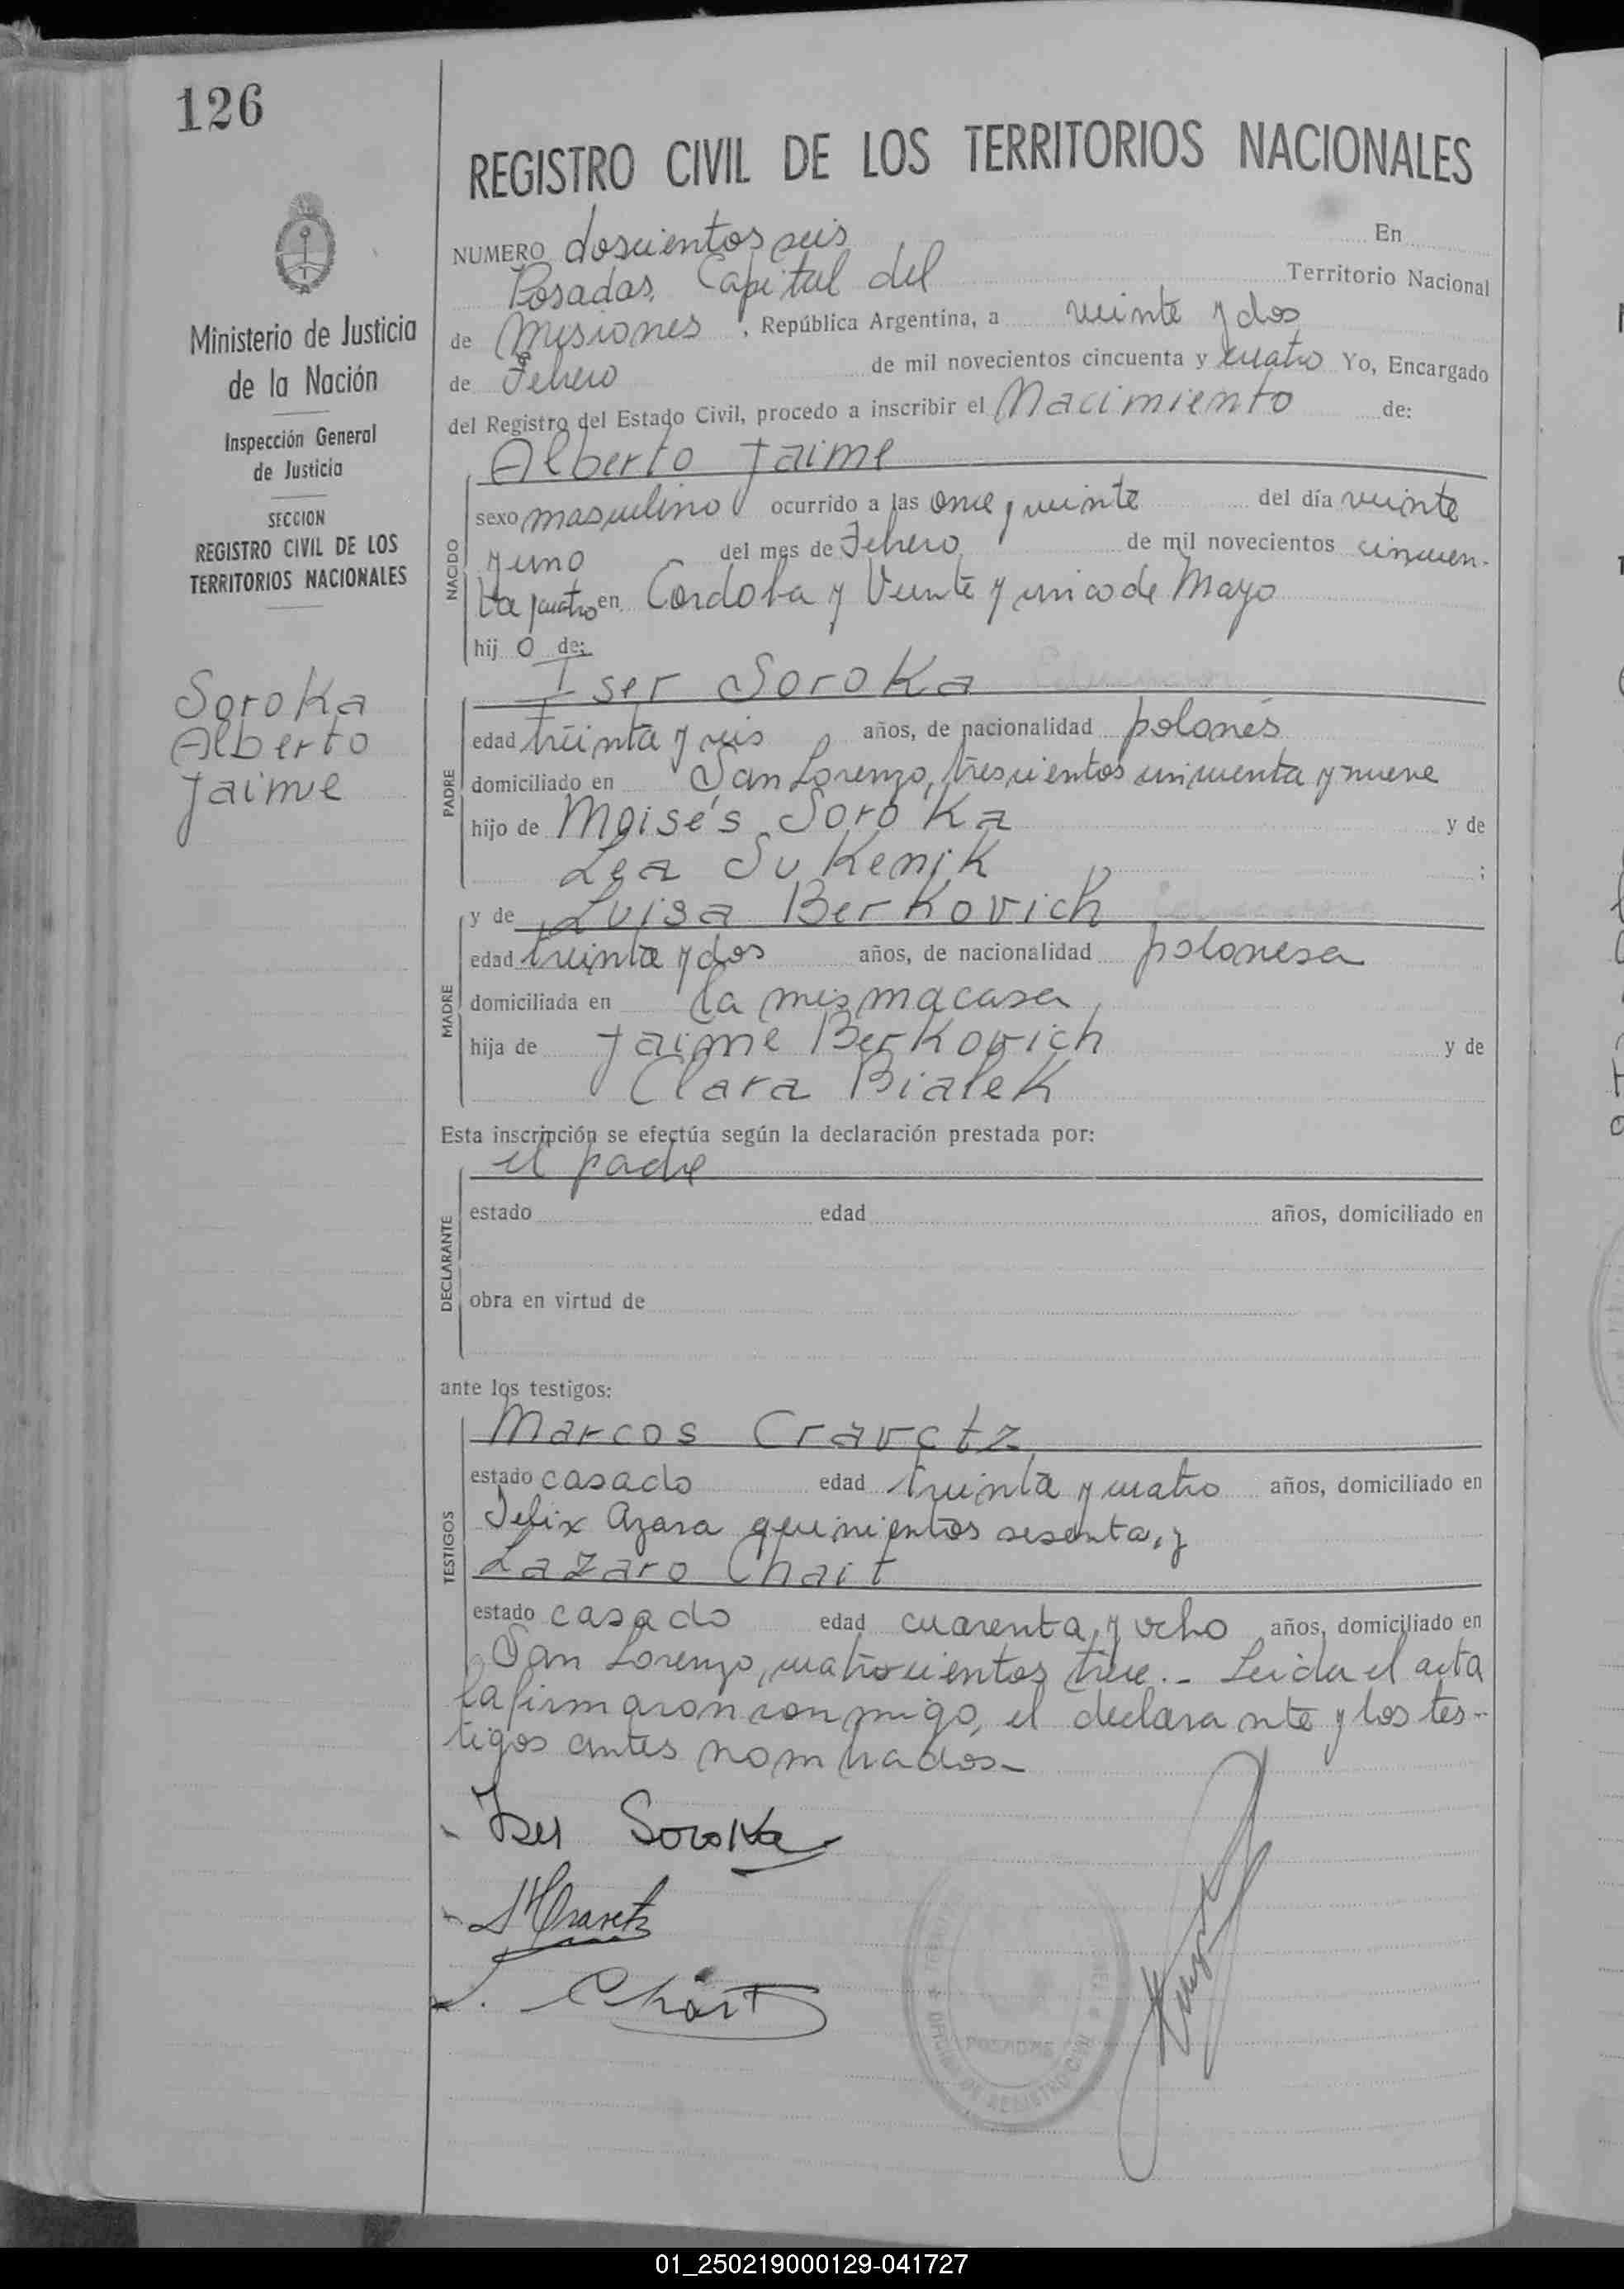 126
REGISTRO CIVIL DE LOS TERRITORIOS NACIONALES
NUMERO doscientos seis En
Posadas, Capital del Territorio Nacional
de Misiones, República Argentina, a veinte y dos
de Febrero de mil novecientos cincuenta y cuatro Yo, Encargado
del Registro del Estado Civil, procedo a inscribir el Nacimiento de:
Alberto Jaime
NACIDO
sexo masculino ocurrido a las once y veinte del día veinte
y uno del mes de Febrero de mil novecientos cincuen-
ta y cuatro en Cordoba y Veinte y cinco de Mayo
hijo de:
Iser Soroka
PADRE
edad treinta y seis años, de nacionalidad polonés
domiciliado en San Lorenzo, trescientos cincuenta y nueve
hijo de Moisés Soroka y de
Lea Sukenik ;
y de Luisa Berkovich
MADRE
edad treinta y dos años, de nacionalidad polonesa
domiciliada en la misma casa
hija de Jaime Berkovich y de
Clara Bialek
Esta inscripción se efectúa según la declaración prestada por:
el padre
DECLARANTE
estado edad años, domiciliado en
obra en virtud de
ante los testigos:
Marcos Cravetz
TESTIGOS
estado casado edad treinta y cuatro años, domiciliado en
Felix Azara quinientos sesenta, y
Lazaro Chait
estado casado edad cuarenta y ocho años, domiciliado en
San Lorenzo, cuatrocientos trece.- Leida el acta
la firmaron conmigo, el declarante y los tes-
tigos antes nombrados.-
Iser Soroka
M Cravetz
L. Chait
POSADAS
Ministerio de Justicia
de la Nación
Inspección General
de Justicia
SECCION
REGISTRO CIVIL DE LOS
TERRITORIOS NACIONALES
Soroka
Alberto
Jaime
01_250219000129-041727